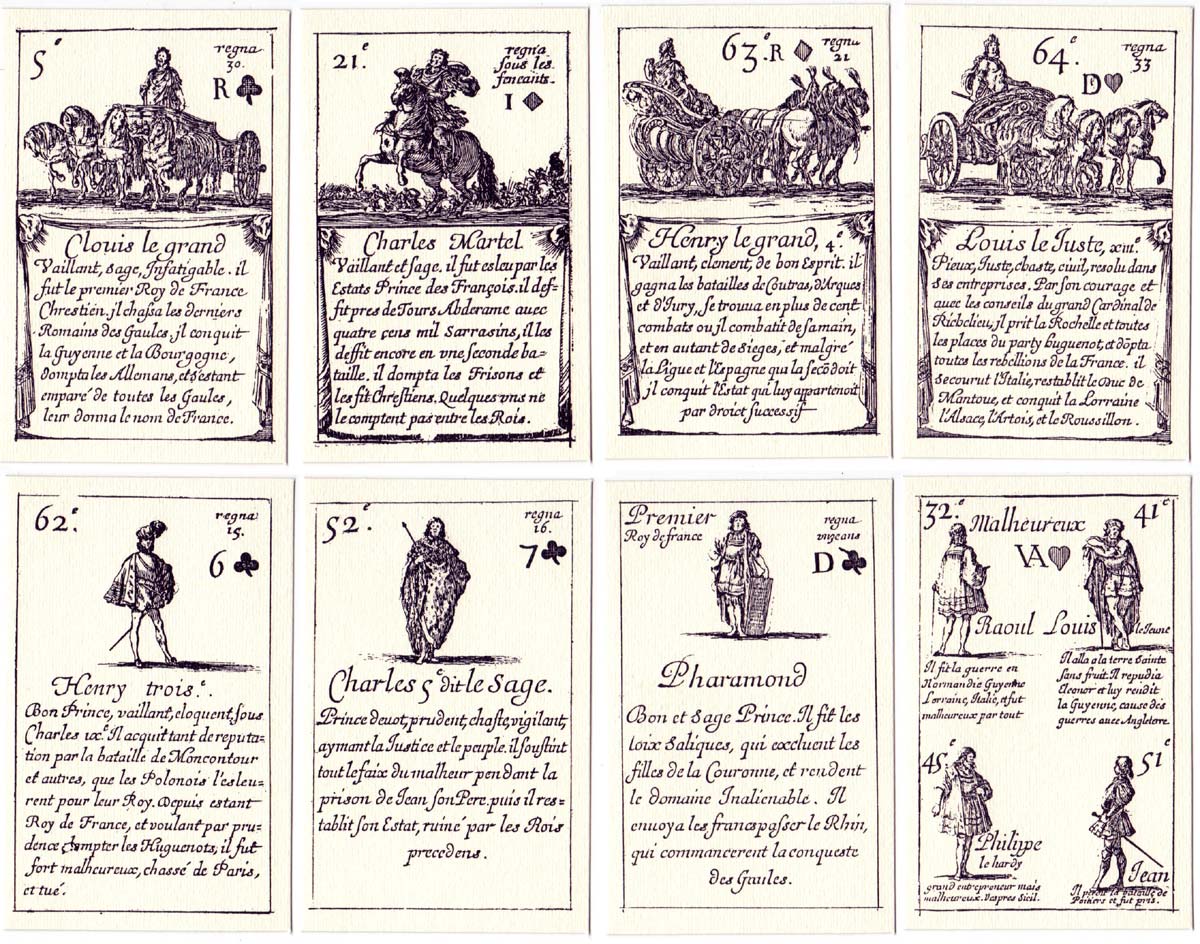 5e
regna
30.
R
Clouis le grand
Vaillant, sage, Infatigable. il
fut le premier Roy de France
Chrestien. jl chassa les derniers
Romains des Gaules, jl conquit
la Guyenne et la Bourgogne,
dompta les Allemans, et s'estant
emparé de toutes les Gaules,
leur donna le nom de France.
21.e
regna
sous les
feneants.
I
Charles Martel
Vaillant et sage. il fut esleu par les
Estats Prince des François. il def-
fit pres de Tours Abderame auec
quatre çens mil Sarrasins, il les
deffit encore en vne seconde ba=
taille. il dompta les Frisons et
les fit Chrestiens. Quelques vns ne
le comptent pas entre les Rois.
63.e R
regna
21
Henry le grand, 4.e
Vaillant, clement, de bon Esprit. il
gagna les batailles de Coutras, d'Arques
et d'Iury, se trouua en plus de cent
combats ou jl combatit de sa main,
et en autant de sieges, et malgré
la Ligue et l'Espagne qui la secõdoit
jl conquit l'Estat qui luy appartenoit
par droict successif
64.e
regna
33
D
Louis le Iuste, xiii.e
Pieux, Iuste, chaste, ciuil, resolu dans
ses entreprises. Par son courage et
auec les conseils du grand Cardinal de
Richelieu, jl prit la Rochelle et toutes
les places du party huguenot, et dõpta
toutes les rebellions de la France. il
secourut l'Italie, restablit le Duc de
Mantoue, et conquit la Lorraine
l'Alsace, l'Artois, et le Roussillon.
62.e
regna
15.
6
Henry trois.e.
Bon Prince, vaillant, eloquent, sous
Charles ix.e Il acquit tant de reputa=
tion par la bataille de Moncontour
et autres, que les Polonois l'esleu=
rent pour leur Roy. Depuis estant
Roy de France, et voulant par pru=
dence dompter les Huguenots, il fut
fort malheureux, chassé de Paris,
et tué.
52.e
regna
16.
7
Charles 5e dit le Sage.
Prince deuot, prudent, chaste, vigilant,
aymant la Iustice et le peuple. il soustint
tout le faix du malheur pendant la
prison de Iean son Pere. puis il res=
tablit son Estat, ruiné par les Rois
precedens.
Premier
Roy de france
regna
vnze ans
D
Pharamond
Bon et sage Prince. Il fit les
loix saliques, qui excluent les
filles de la Couronne, et rendent
le domaine Inalienable. Il
enuoya les francs passer le Rhin,
qui commancerent la conqueste
des Gaules.
32.e Malheureux 41e
VA
Raoul Louis le Ieune
Il fit la guerre en
Normandie Guyenne
Lorraine, Italie, et fut
malheureux par tout
Il alla a la terre Sainte
sans fruit. Il repudia
Eleonor et luy rendit
la Guyenne, cause des
guerres auec Angleterre.
45.e 51e
Philippe
le hardy
grand entrepreneur mais
malheureux. Vespres Sicil.
Iean
Il perdit la bataille de
Poitiers et fut pris.